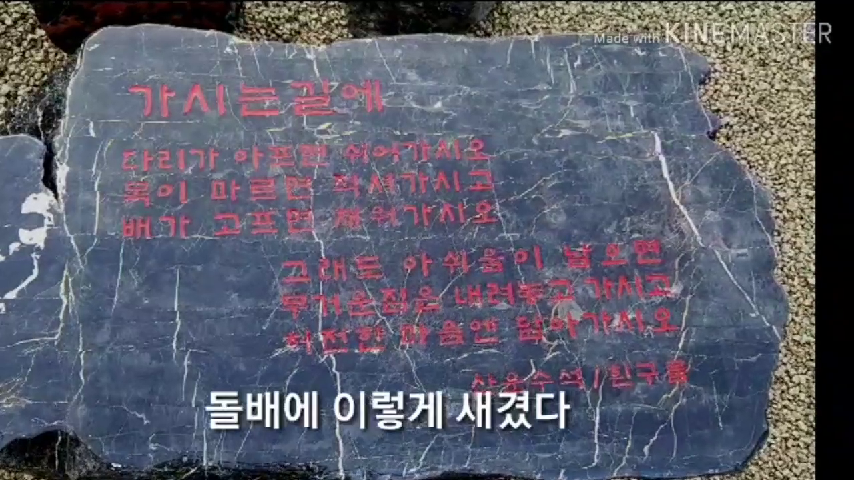 Made with KINEMASTER
가시는길에
다리가 아프면 쉬어가시오
목이 마르면 적셔가시고
배가 고프면 채워가시오
그래도 아쉬움이 남으면
무거운짐은 내려놓고 가시고
허전한 마음엔 담아가시오
돌배에 이렇게 새겼다